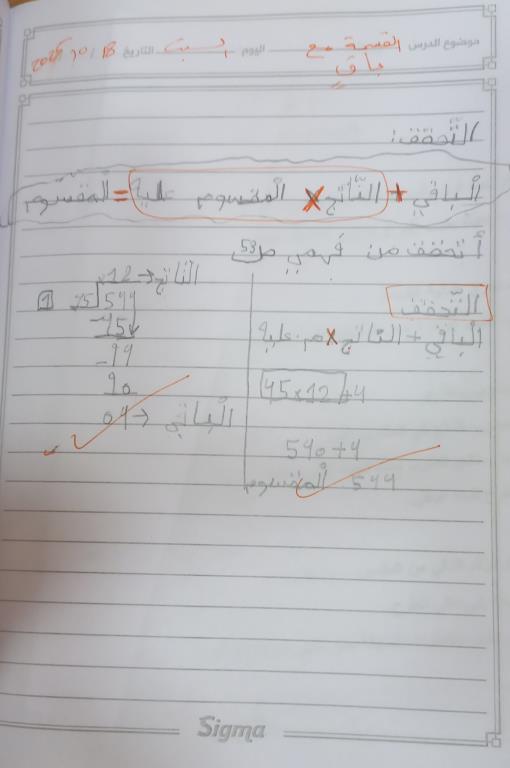 موضوع الدرس القسمة مع باقٍ اليوم السبت التاريخ 18/10/2025
التحقق:
الباقي + الناتج × المقسوم علية = المقسوم
أتحقق من فهمي ص 53
التحقق
الباقي + الناتج × م. علية
45×12+4
540+4
544 المقسوم
12 → الناتج
1 45 544
- 45
- 94
90
04 → الباقي
Sigma